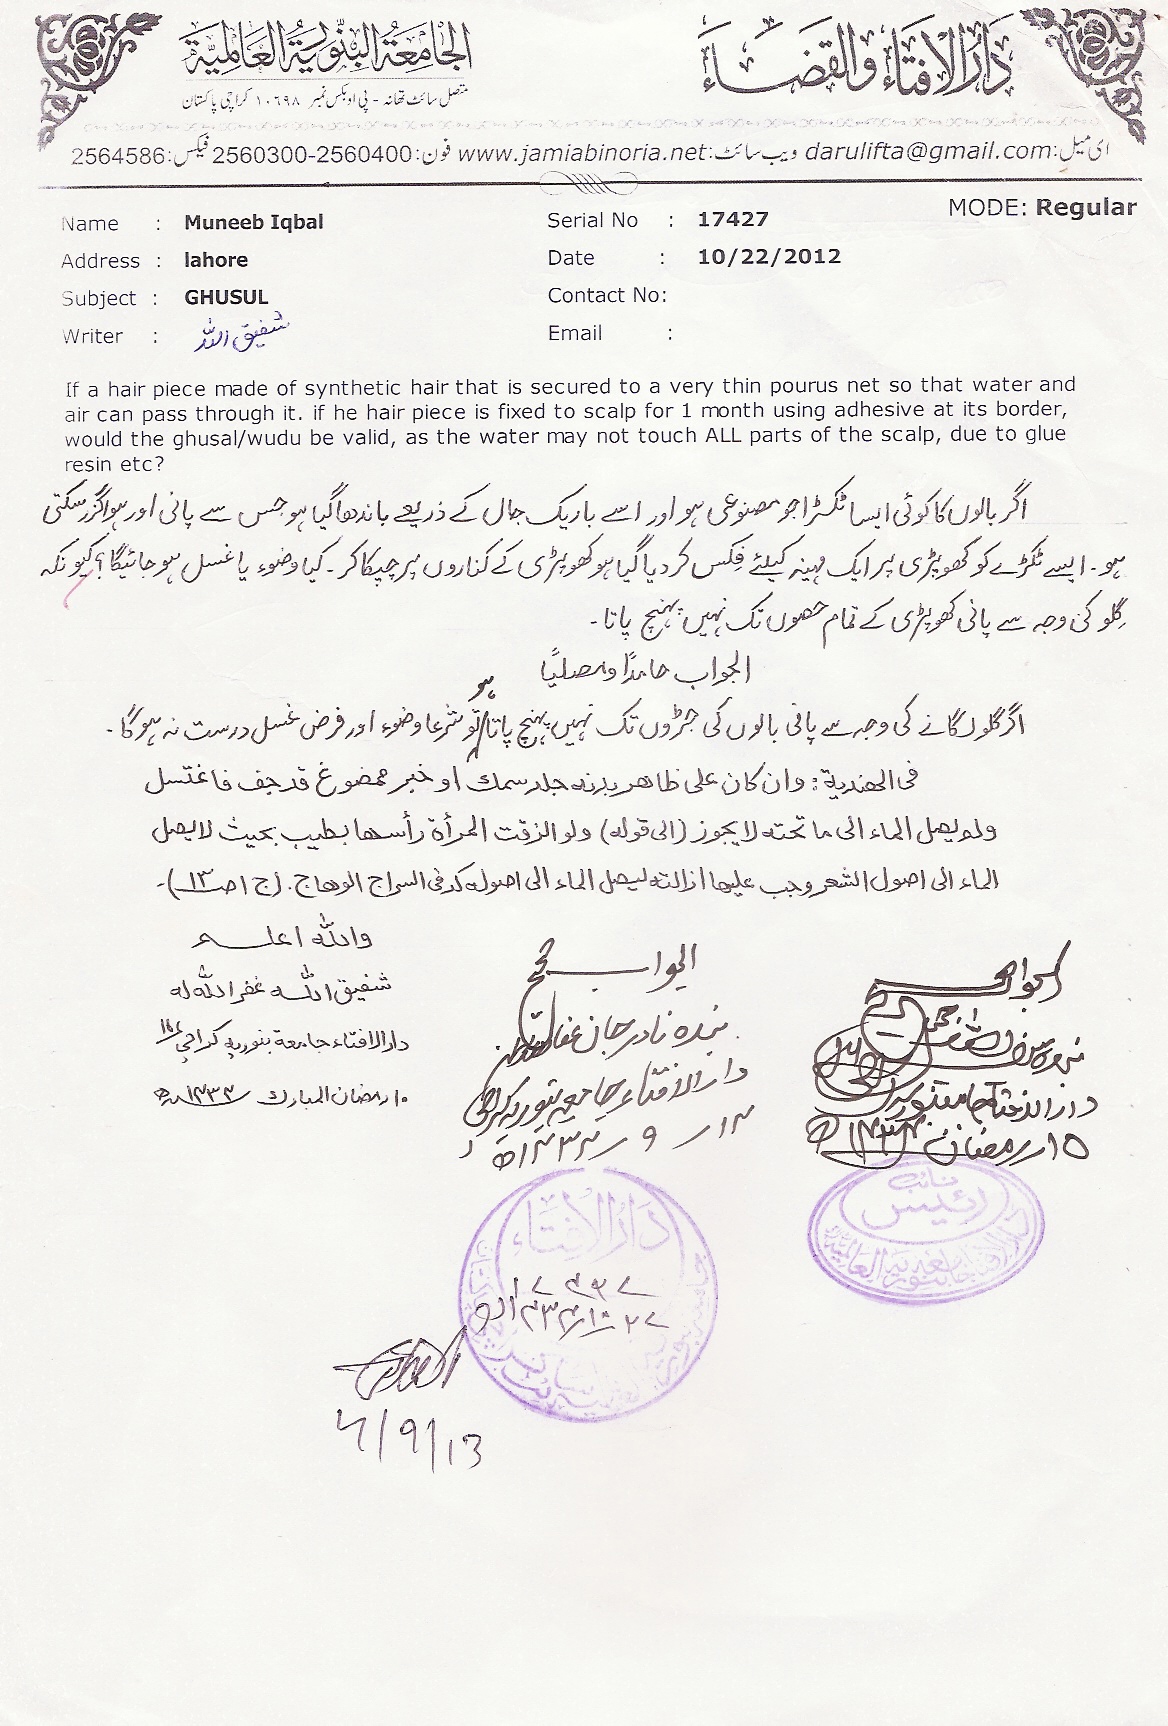 دَارُالْاِفْتَاءِ وَالْقَضَاءِ
الجَامِعَةُ البِنُّورِيَّةُ العَالَمِيَّة
متصل سائٹ تھانہ - پی او بکس نمبر ۱۰۶۹۸ کراچی پاکستان
ای میل:darulifta@gmail.com ویب سائٹ:www.jamiabinoria.net فون:2560300-2560400 فیکس:2564586
MODE: Regular
Name : Muneeb Iqbal Serial No : 17427
Address : lahore Date : 10/22/2012
Subject : GHUSUL Contact No:
Writer : شفیق اللہ Email :
If a hair piece made of synthetic hair that is secured to a very thin pourus net so that water and
air can pass through it. if he hair piece is fixed to scalp for 1 month using adhesive at its border,
would the ghusal/wudu be valid, as the water may not touch ALL parts of the scalp, due to glue
resin etc?
اگر بالوں کا کوئی ایسا ٹکڑا جو مصنوعی ہو اور اسے باریک جال کے ذریعے باندھا گیا ہو جس سے پانی اور ہوا گزر سکتی
ہو۔ ایسے ٹکڑے کو کھوپڑی پر ایک مہینہ کیلئے فِکس کر دیا گیا ہو کھوپڑی کے کناروں پر چپکا کر۔ کیا وضوء یا غسل ہو جائیگا؟ کیونکہ
گِلو کی وجہ سے پانی کھوپڑی کے تمام حصوں تک نہیں پہنچ پاتا۔
الجواب حامدًا ومصلیًا
اگر گلو لگانے کی وجہ سے پانی بالوں کی جڑوں تک نہیں پہنچ پاتا ہو تو شرعا وضوء اور فرض غسل درست نہ ہوگا۔
فی الھندیة: وان کان علی ظاھر بدنہ جلد سمك او خبز ممضوغ قد جف فاغتسل
ولم یصل الماء الی ما تحتہ لا یجوز (الی قولہ) ولو الزقت المرأة رأسھا بطیب بحیث لا یصل
الماء الی اصول الشعر وجب علیھا ازالتہ لیصل الماء الی اصولہ کذ فی السراج الوھاج. (ج ۱ ص ۱۳)۔
واللہ اعلم
شفیق اللہ غفر اللہ لہ
دارالافتاء جامعة بنوریہ کراچی
۱۰ رمضان المبارك ۱۴۳۴ھ
الجواب صحیح
بندہ نادر جان
دارالافتاء جامعہ بنوریہ کراچی
الجواب صحیح
دارالافتاء جامعہ بنوریہ
۱۵ رمضان ۱۴۳۴ھ
نائب
رئیس
دَارُالْاِفْتَاء
6/9/13